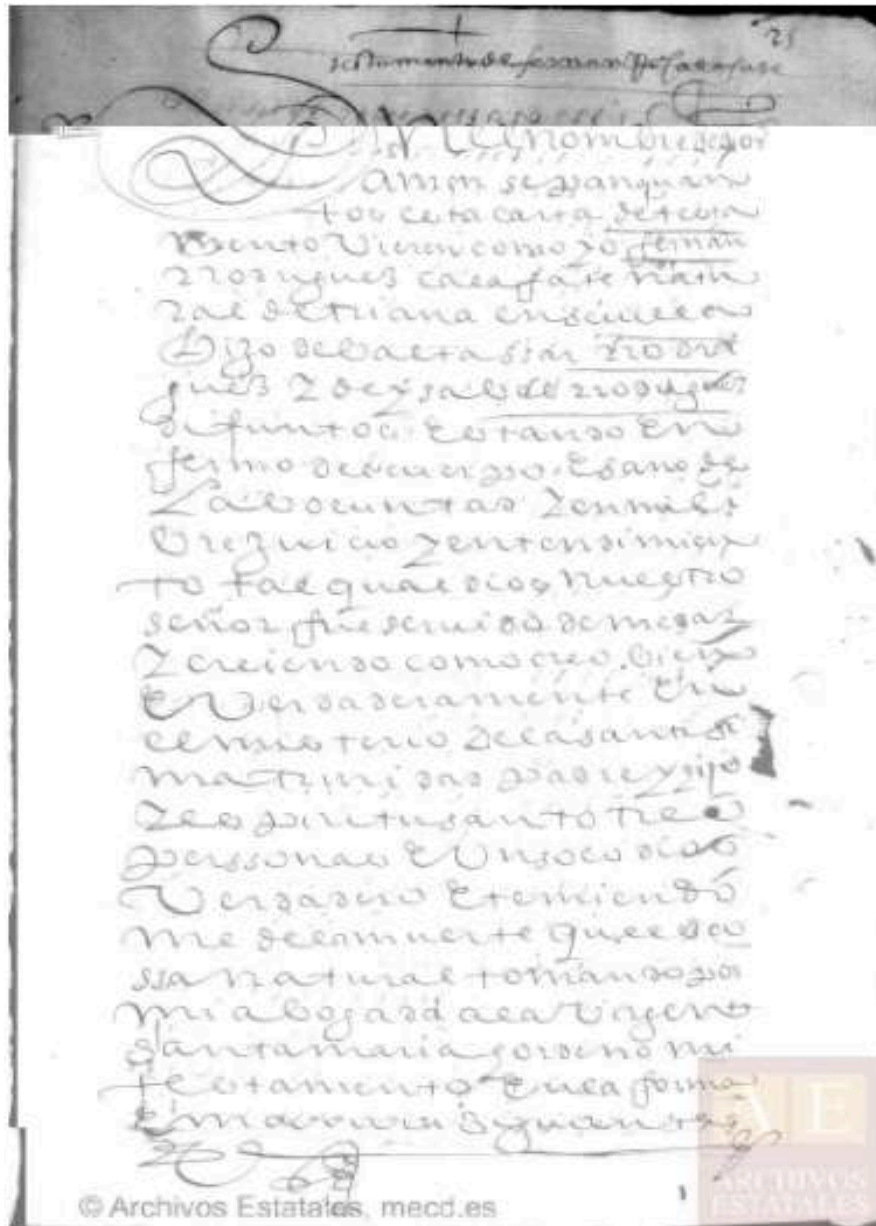 25
testamento de fernan Rs calafate
En el nombre de dios
amen sepan quan
tos esta carta de testa
mento Vieren como yo fernan
rrodriguez calafate natu
ral de triana en seuilla
hijo de baltassar rrodri
guez y de ysabel rrodriguez
difuntos estando en
fermo del cuerpo e sano de
la voluntad y en mi li
bre juicio y entendimien
to tal qual dios nuestro
señor fue seruido de me dar
y creiendo como creo bien
e Verdaderamente en
el misterio de la santissi
ma trinidad padre y hijo
y espiritu santo tres
perssonas e Un solo dios
Verdadero e temiendo
me de la muerte que es co
ssa natural tomando por
mi abogada a la Virgen
santa maria y ordeno mi
testamento en la forma
e manera siguiente
© Archivos Estatales, mecd.es
AE
ARCHIVOS
ESTATALES